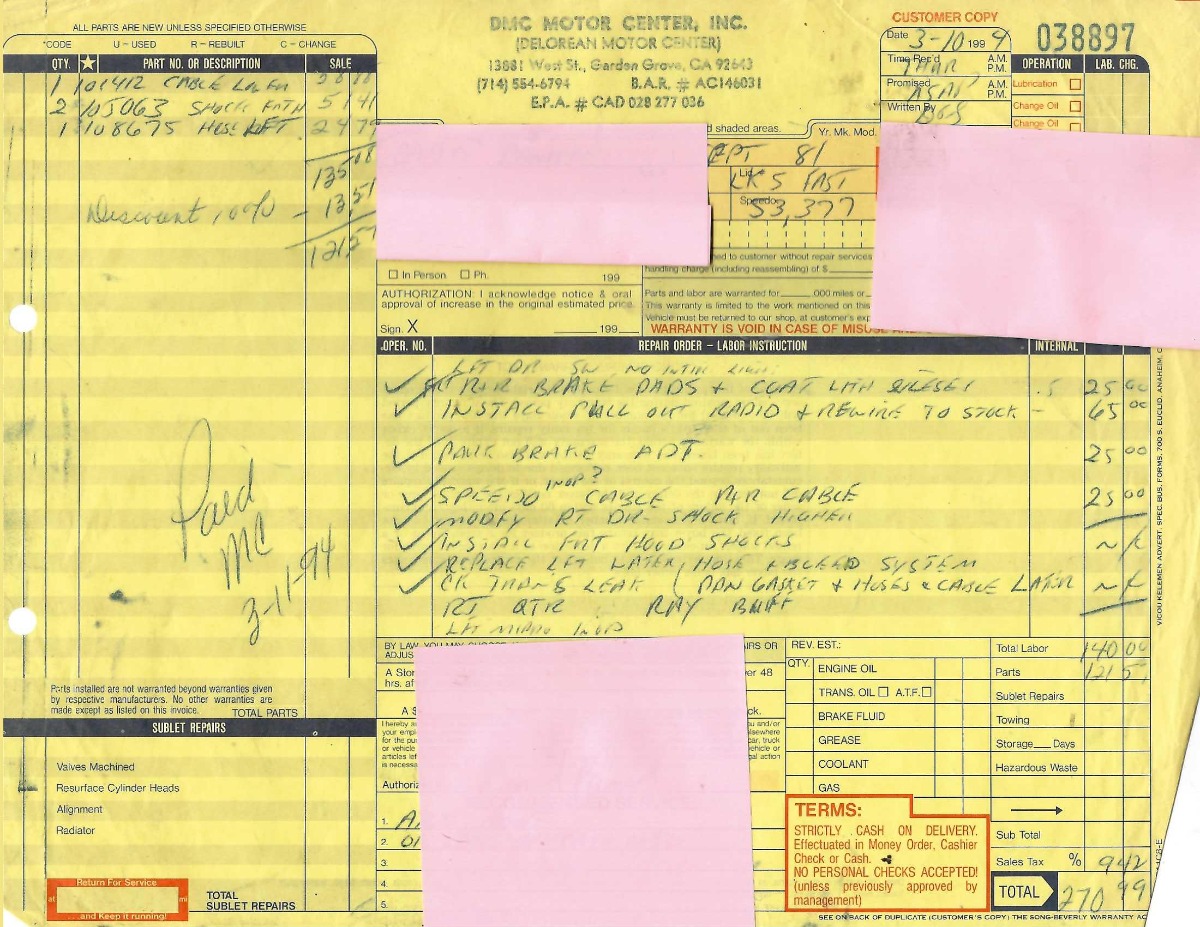 ALL PARTS ARE NEW UNLESS SPECIFIED OTHERWISE
*CODE U – USED R – REBUILT C – CHANGE
QTY. ★ PART NO. OR DESCRIPTION SALE
1 101412 CABLE
2 105063 SHOCK 5141
1 108675 HOSE LFT. 2479
13508
Discount 10% - 1351
12157
Paid
MC
3-11-94
Parts installed are not warranted beyond warranties given
by respective manufacturers. No other warranties are
made except as listed on this invoice.
TOTAL PARTS
SUBLET REPAIRS
Valves Machined
Resurface Cylinder Heads
Alignment
Radiator
Return For Service
at mi
...and Keep it running!
TOTAL
SUBLET REPAIRS
DMC MOTOR CENTER, INC.
(DELOREAN MOTOR CENTER)
13881 West St., Garden Grove, CA 92643
(714) 554-6794 B.A.R. # AC146031
E.P.A. # CAD 028 277 036
CUSTOMER COPY
038897
Date 3-10 1994
Time Rec'd A.M.
P.M.
Promised ASAP A.M.
P.M.
Written By
OPERATION LAB. CHG.
Lubrication
Change Oil
Change Oil
d shaded areas.
Yr. Mk. Mod.
EPT 81
Lic. # LK S FAST
Speedo 53,377
ned to customer without repair services
handling charge (including reassembling) of $
In Person Ph. 199
AUTHORIZATION: I acknowledge notice & oral
approval of increase in the original estimated price.
Sign. X 199
Parts and labor are warranted for ,000 miles or
This warranty is limited to the work mentioned on this
Vehicle must be returned to our shop, at customer's exp
WARRANTY IS VOID IN CASE OF MISUSE
OPER. NO. REPAIR ORDER – LABOR INSTRUCTION INTERNAL
LFT DR SW NO
R&R BRAKE PADS + COAT .5 25 00
INSTALL PULL OUT RADIO + REWIRE TO STOCK – 65 00
PARK BRAKE ADT. 25 00
SPEEDO INOP? CABLE R&R CABLE 25 00
MODFY RT DR SHOCK HIGHER
INSTALL FRT HOOD SHOCKS
REPLACE LFT LATER, HOSE + BLEED SYSTEM
CK TRANS LEAK (PAN GASKET + HOSES & CABLE LATER
RT QTR RAY BUFF
LFT MIRRO INOP
VICOU KELEMEN ADVERT. SPEC. BUS. FORMS, 700 S. EUCLID, ANAHEIM, C
BY LAW, YOU MAY CHOOSE
IRS OR
ADJUS
A Stor
er 48
hrs. af
A S
ck.
I hereby au
you and/or
your empl
elsewhere
for the pu
car, truck
or vehicle
vehicle or
articles lef
gal action
is necessa
Authoriz
1. A
2. 01
3.
4.
5.
REV. EST.:
QTY.
ENGINE OIL
TRANS. OIL A.T.F.
BRAKE FLUID
GREASE
COOLANT
GAS
TERMS:
STRICTLY CASH ON DELIVERY.
Effectuated in Money Order, Cashier
Check or Cash.
NO PERSONAL CHECKS ACCEPTED!
(unless previously approved by
management)
Total Labor 140 00
Parts 121 5
Sublet Repairs
Towing
Storage Days
Hazardous Waste
Sub Total
Sales Tax % 942
TOTAL 270 99
SEE ON BACK OF DUPLICATE (CUSTOMER'S COPY) THE SONG-BEVERLY WARRANTY AC